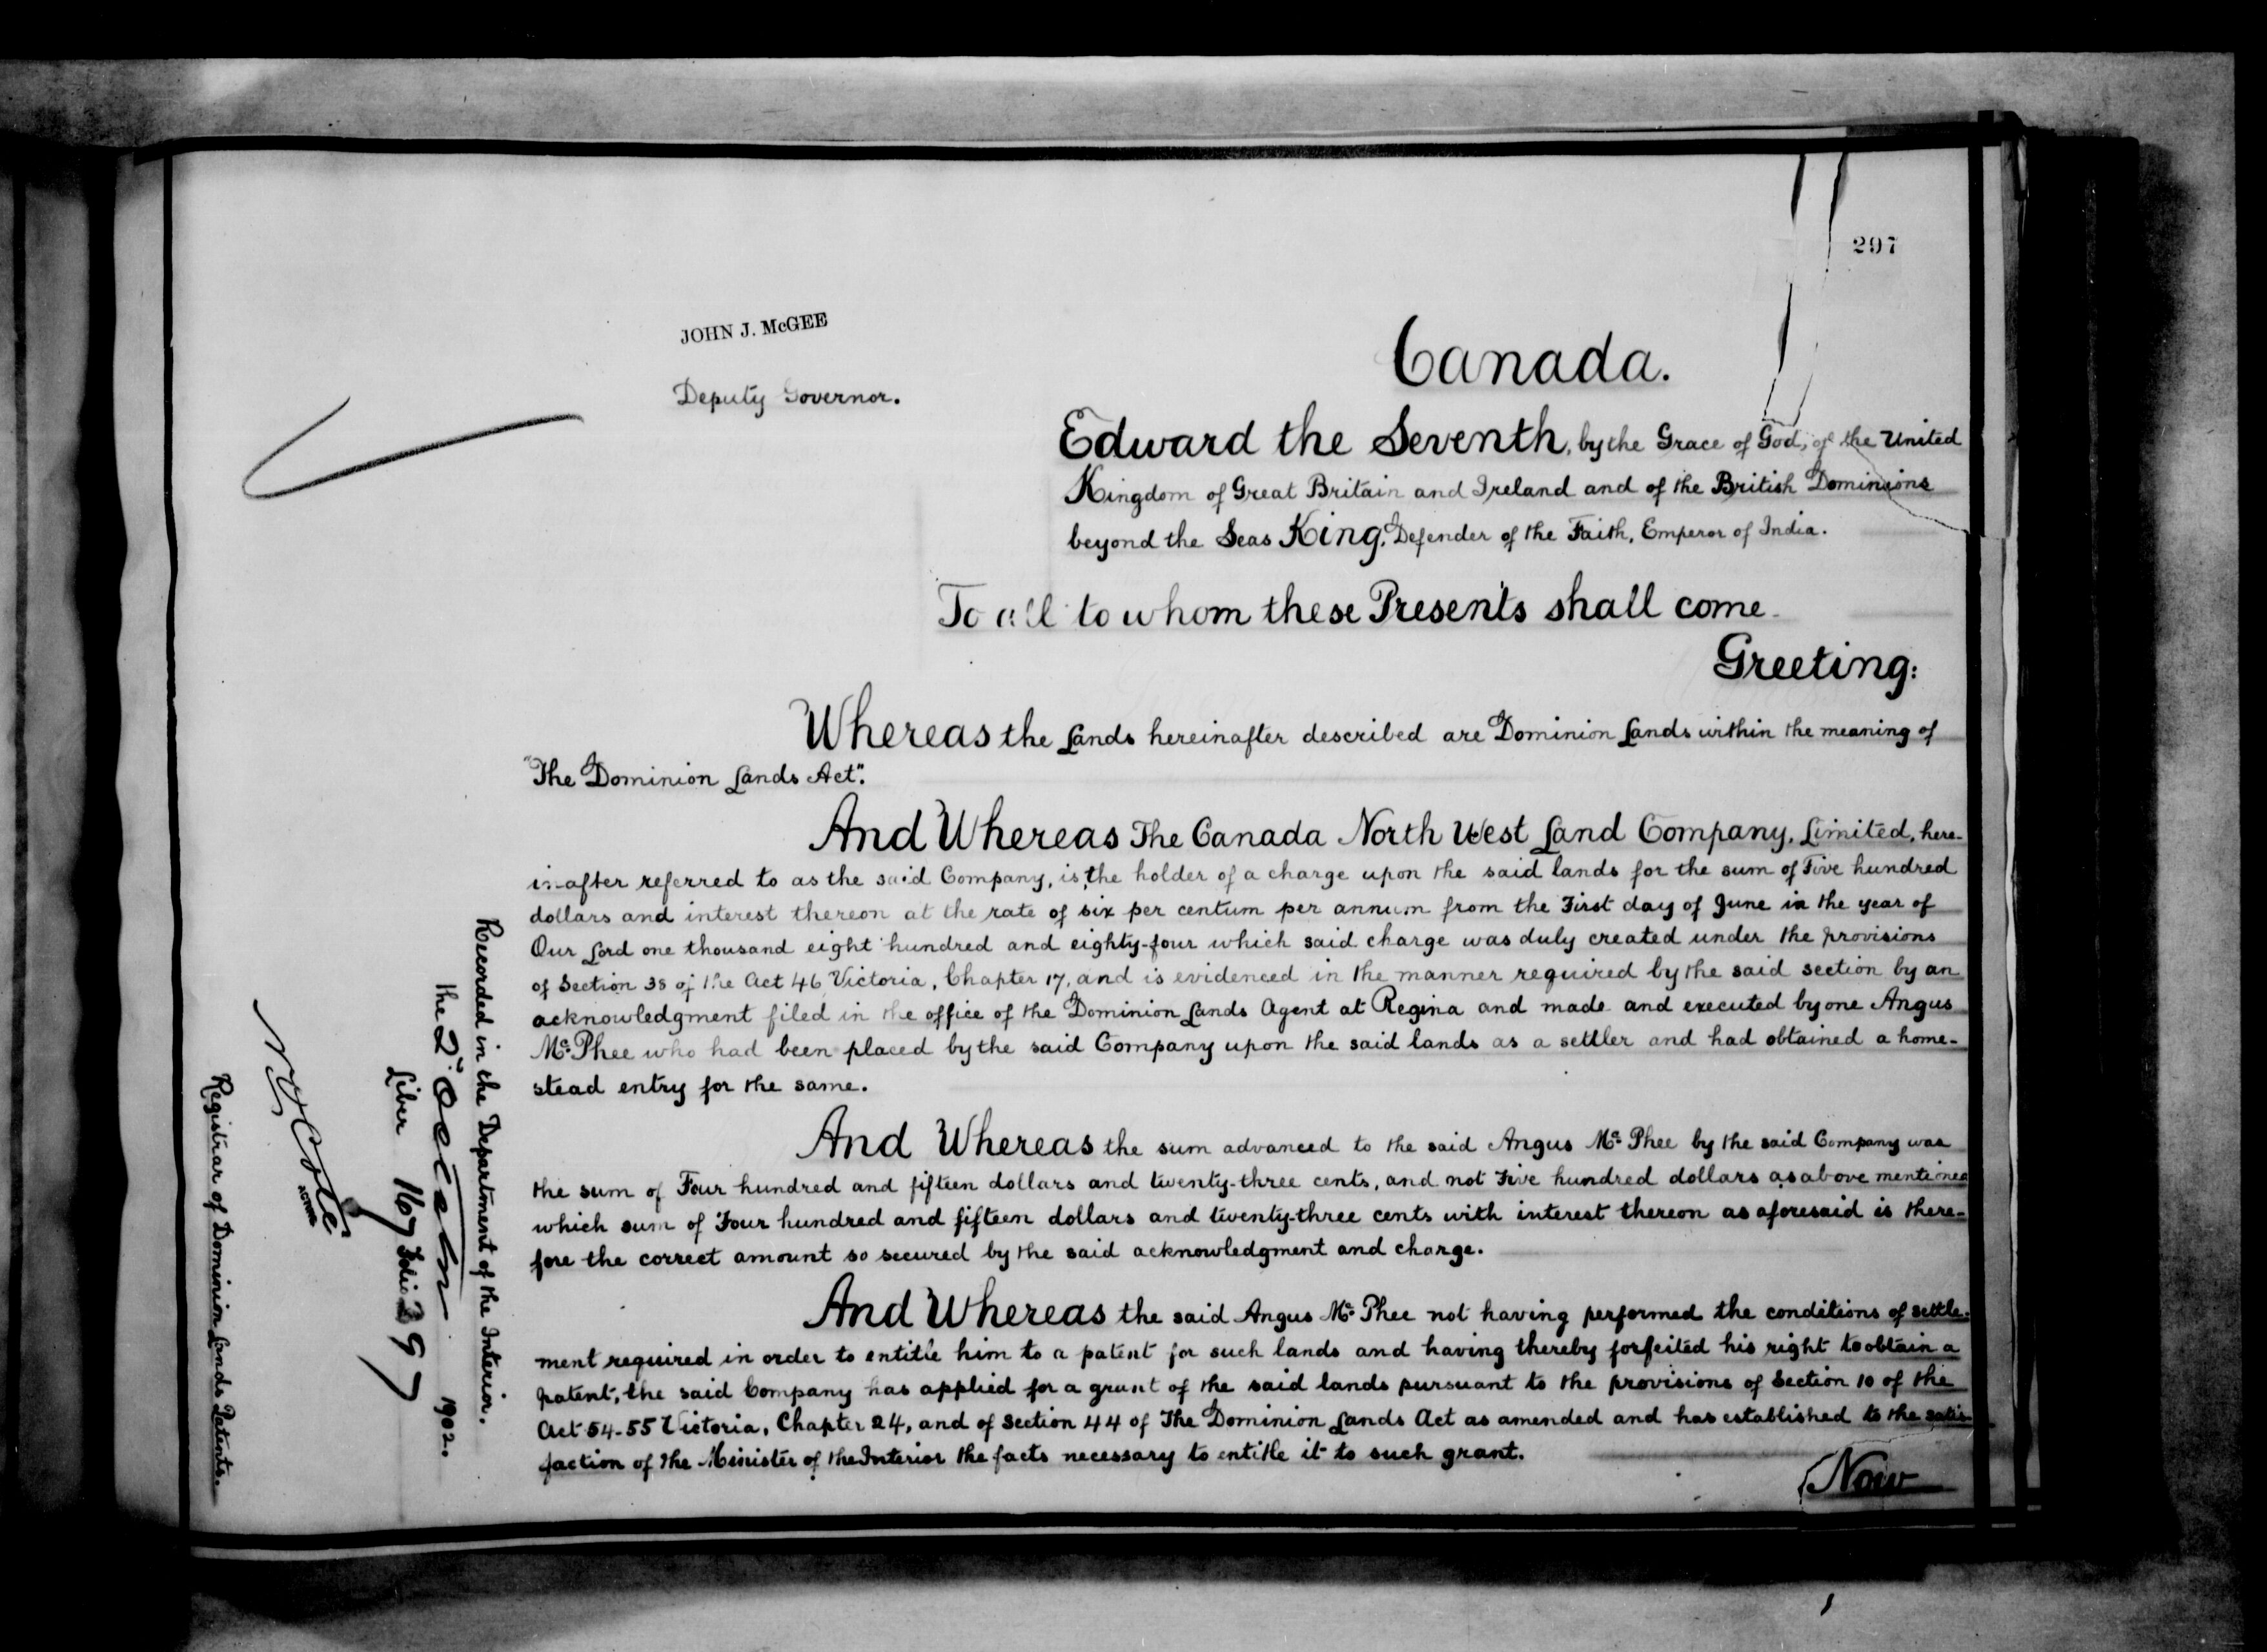 297
JOHN J. McGEE
Deputy Governor.
Canada.
Edward the Seventh, by the Grace of God, of the United
Kingdom of Great Britain and Ireland and of the British Dominions
beyond the Seas King, Defender of the Faith, Emperor of India.
To all to whom these Presents shall come
Greeting:
Whereas the Lands hereinafter described are Dominion Lands within the meaning of
"The Dominion Lands Act".
And Whereas The Canada North West Land Company, Limited, here-
in-after referred to as the said Company, is the holder of a charge upon the said lands for the sum of Five hundred
dollars and interest thereon at the rate of six per centum per annum from the First day of June in the year of
Our Lord one thousand eight hundred and eighty-four which said charge was duly created under the provisions
of Section 38 of the Act 46 Victoria, Chapter 17, and is evidenced in the manner required by the said section by an
acknowledgment filed in the office of the Dominion Lands Agent at Regina and made and executed by one Angus
Mc Phee who had been placed by the said Company upon the said lands as a settler and had obtained a home-
stead entry for the same.
And Whereas the sum advanced to the said Angus Mc Phee by the said Company was
the sum of Four hundred and fifteen dollars and twenty-three cents, and not Five hundred dollars as above mentioned
which sum of Four hundred and fifteen dollars and twenty-three cents with interest thereon as aforesaid is there-
fore the correct amount so secured by the said acknowledgment and charge.
And Whereas the said Angus Mc Phee not having performed the conditions of settle-
ment required in order to entitle him to a patent for such lands and having thereby forfeited his right to obtain a
patent, the said Company has applied for a grant of the said lands pursuant to the provisions of Section 10 of the
Act 54-55 Victoria, Chapter 24, and of Section 44 of The Dominion Lands Act as amended and has established to the satis-
faction of the Minister of the Interior the facts necessary to entitle it to such grant.
Now
Recorded in the Department of the Interior.
the 2nd October 1902.
Liber 167 Folio 297
ACTING
Registrar of Dominion Lands Patents.